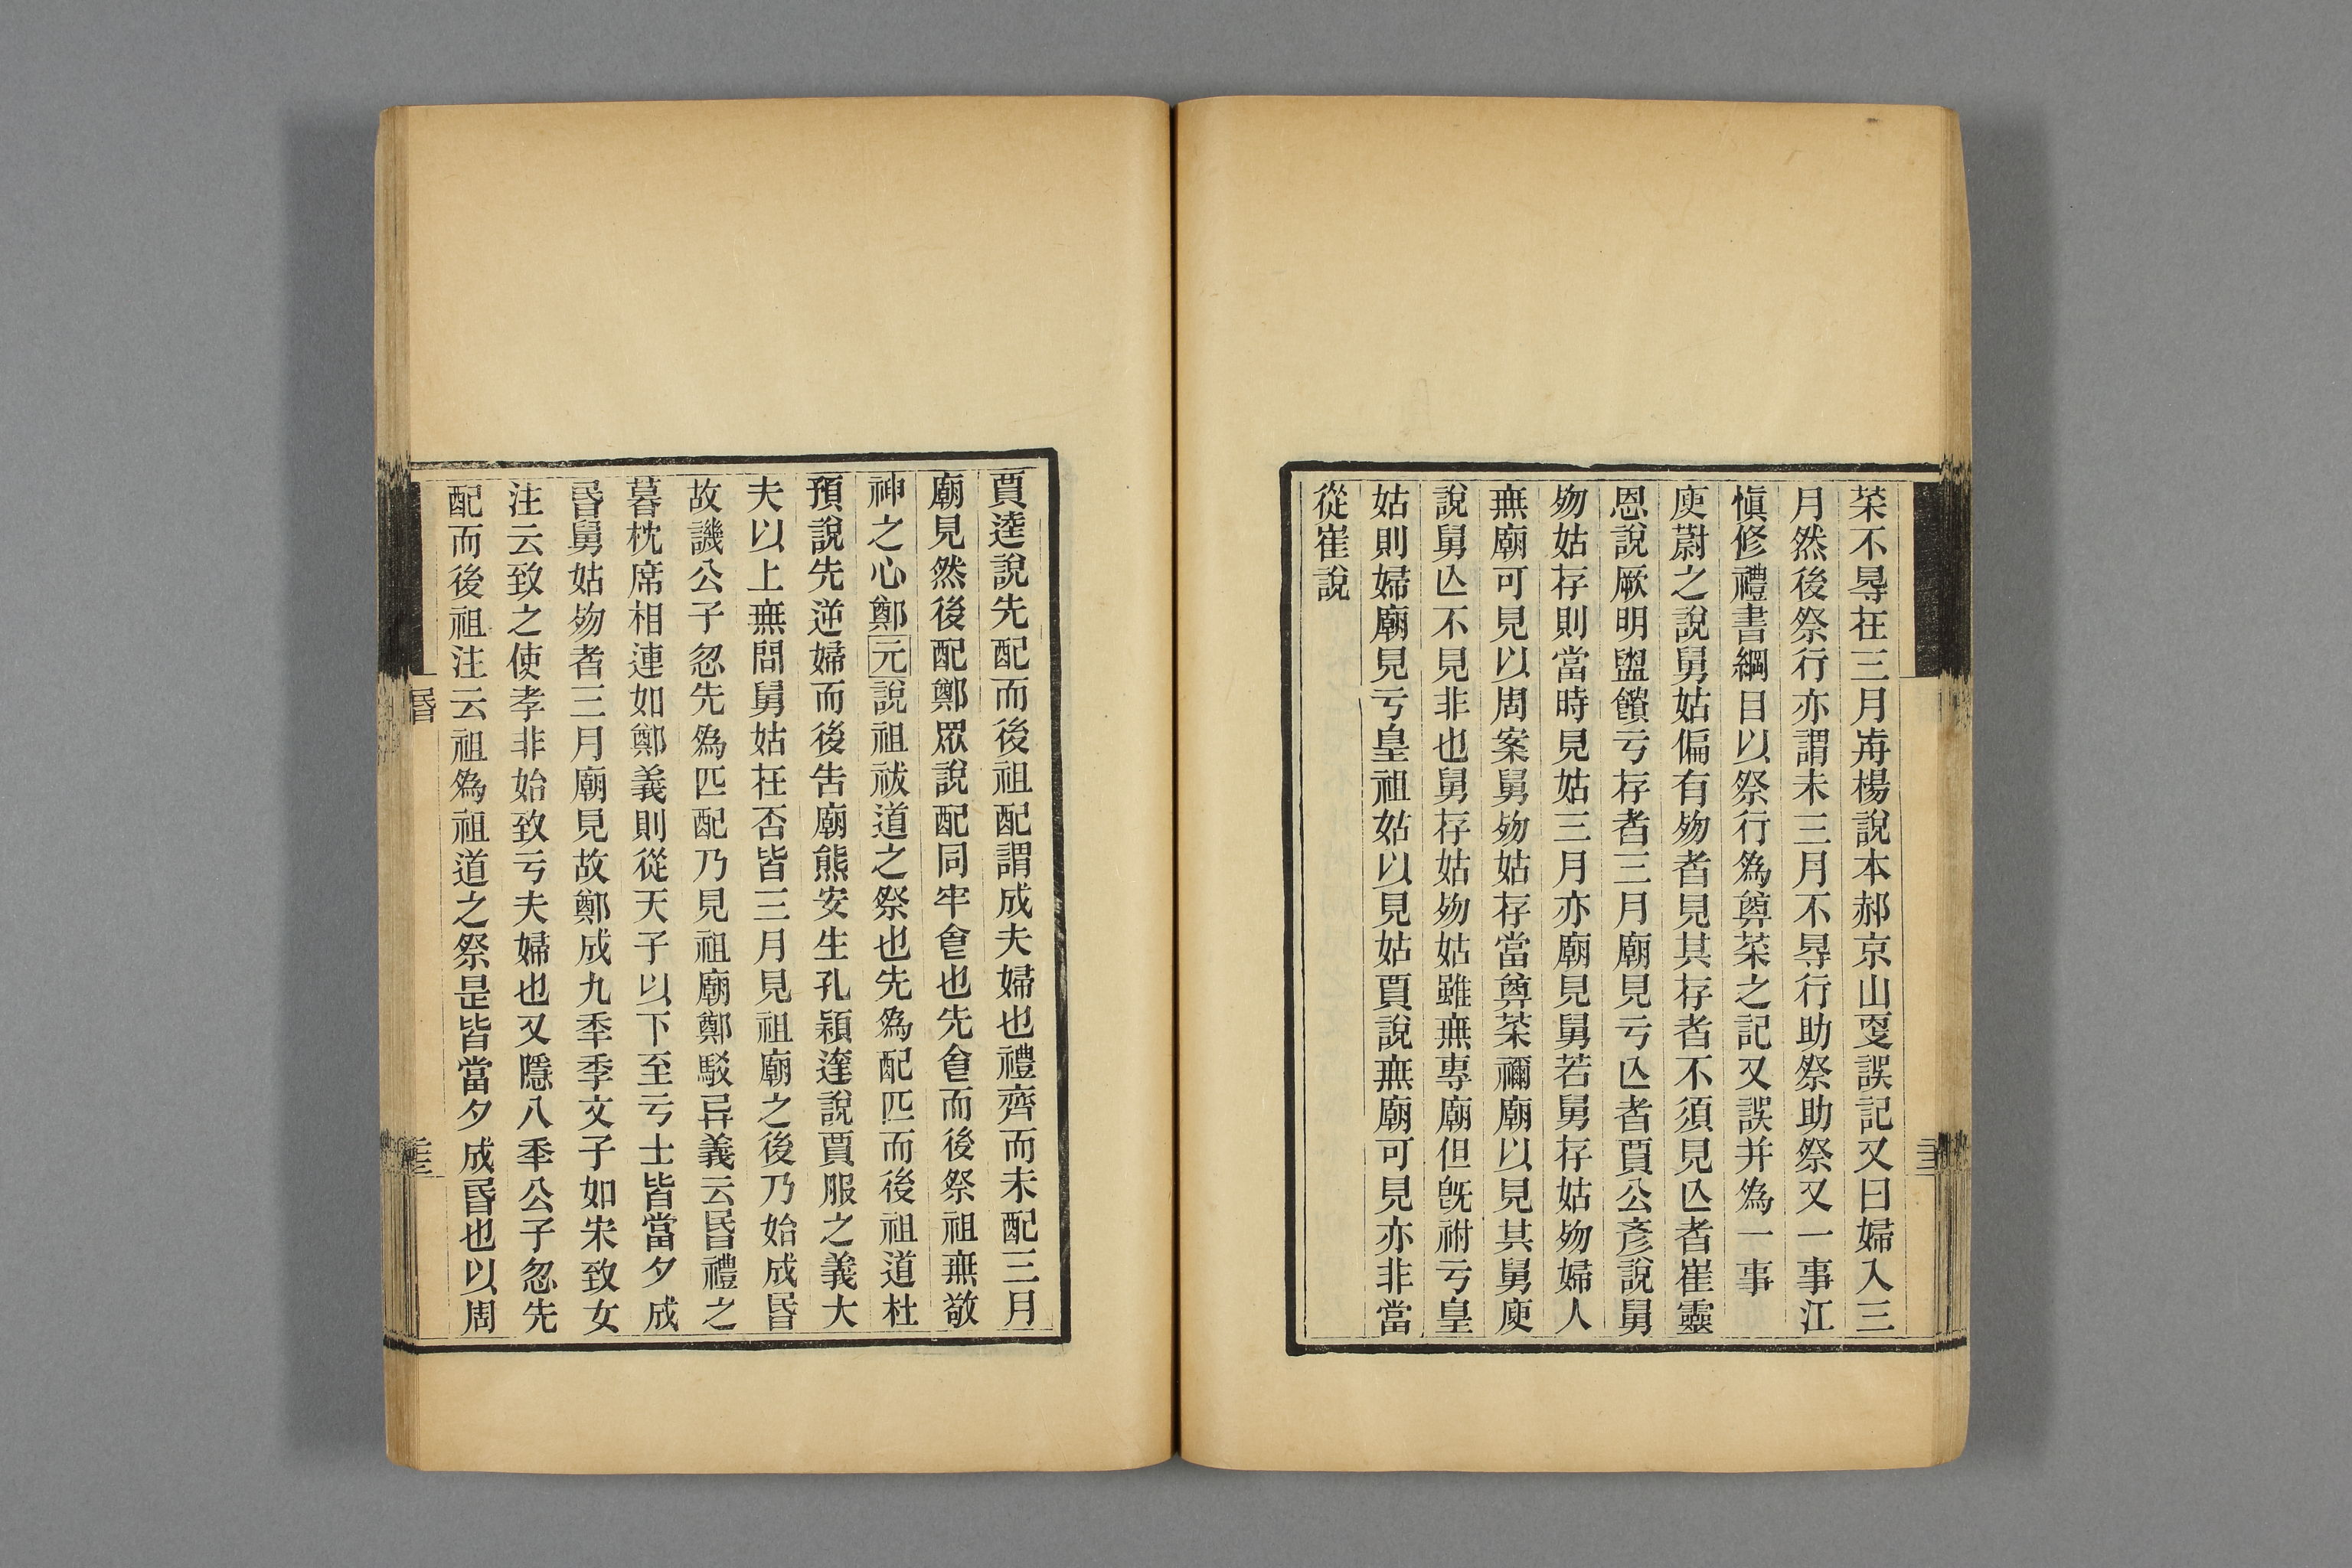 菜不㝵在三月歬楊說本郝京山㪅誤記又曰婦入三
月然後祭行亦謂未三月不㝵行助祭助祭又一事江
愼修禮書綱目以祭行為奠菜之記又誤并為一事
庾蔚之說舅姑偏有歾者見其存者不須見亾者崔靈
恩說厥明盥饋亏存者三月廟見亏亾者賈公彥說舅
歾姑存則當時見姑三月亦廟見舅若舅存姑歾婦人
無廟可見以周案舅歾姑存當奠菜禰廟以見其舅庾
說舅亾不見非也舅存姑歾姑雖無專廟但旣祔亏皇
姑則婦廟見亏皇祖姑以見姑賈說無廟可見亦非當
從崔說
賈逵說先配而後祖配謂成夫婦也禮齊而未配三月
廟見然後配鄭眾說配同牢食也先食而後祭祖無敬
神之心鄭元說祖祓道之祭也先為配匹而後祖道杜
預說先逆婦而後告廟熊安生孔穎達說賈服之義大
夫以上無問舅姑在否皆三月見祖廟之後乃始成昬
故譏公子忽先為匹配乃見祖廟鄭駁异義云昬禮之
暮枕席相連如鄭義則從天子以下至亏士皆當夕成
昬舅姑歾者三月廟見故鄭成九秊季文子如宋致女
注云致之使孝非始致亏夫婦也又隱八秊公子忽先
配而後祖注云祖為祖道之祭是皆當夕成昬也以周
昬